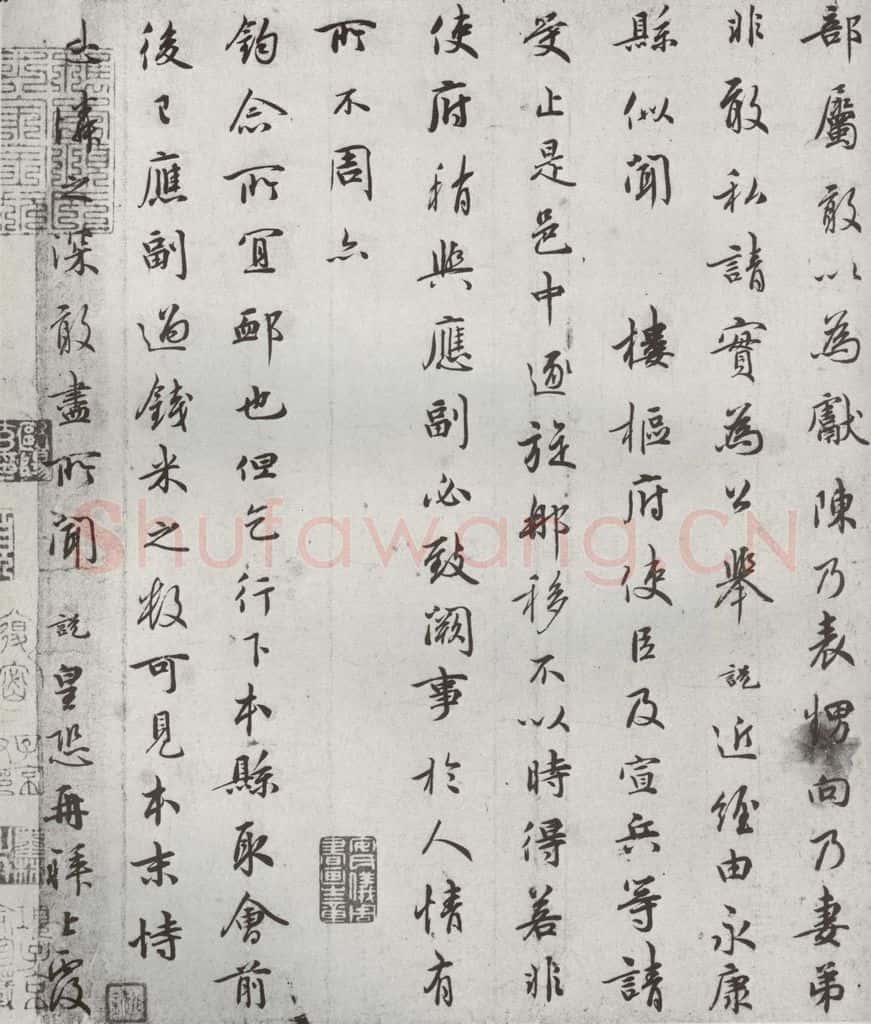 部屬敢以為獻陳乃表甥向乃妻弟
非敢私請實為公舉說近經由永康
縣似聞 樓樞府使臣及宣兵等請
受止是邑中逐旋那移不以時得若非
使府稍與應副必致闕事於人情有
所不周亦
鈞念所宜郵也但乞行下本縣取會前
後已應副過錢米之數可見本末恃
憐之深敢盡所聞說皇恐再拜上覆
Shufawang.CN